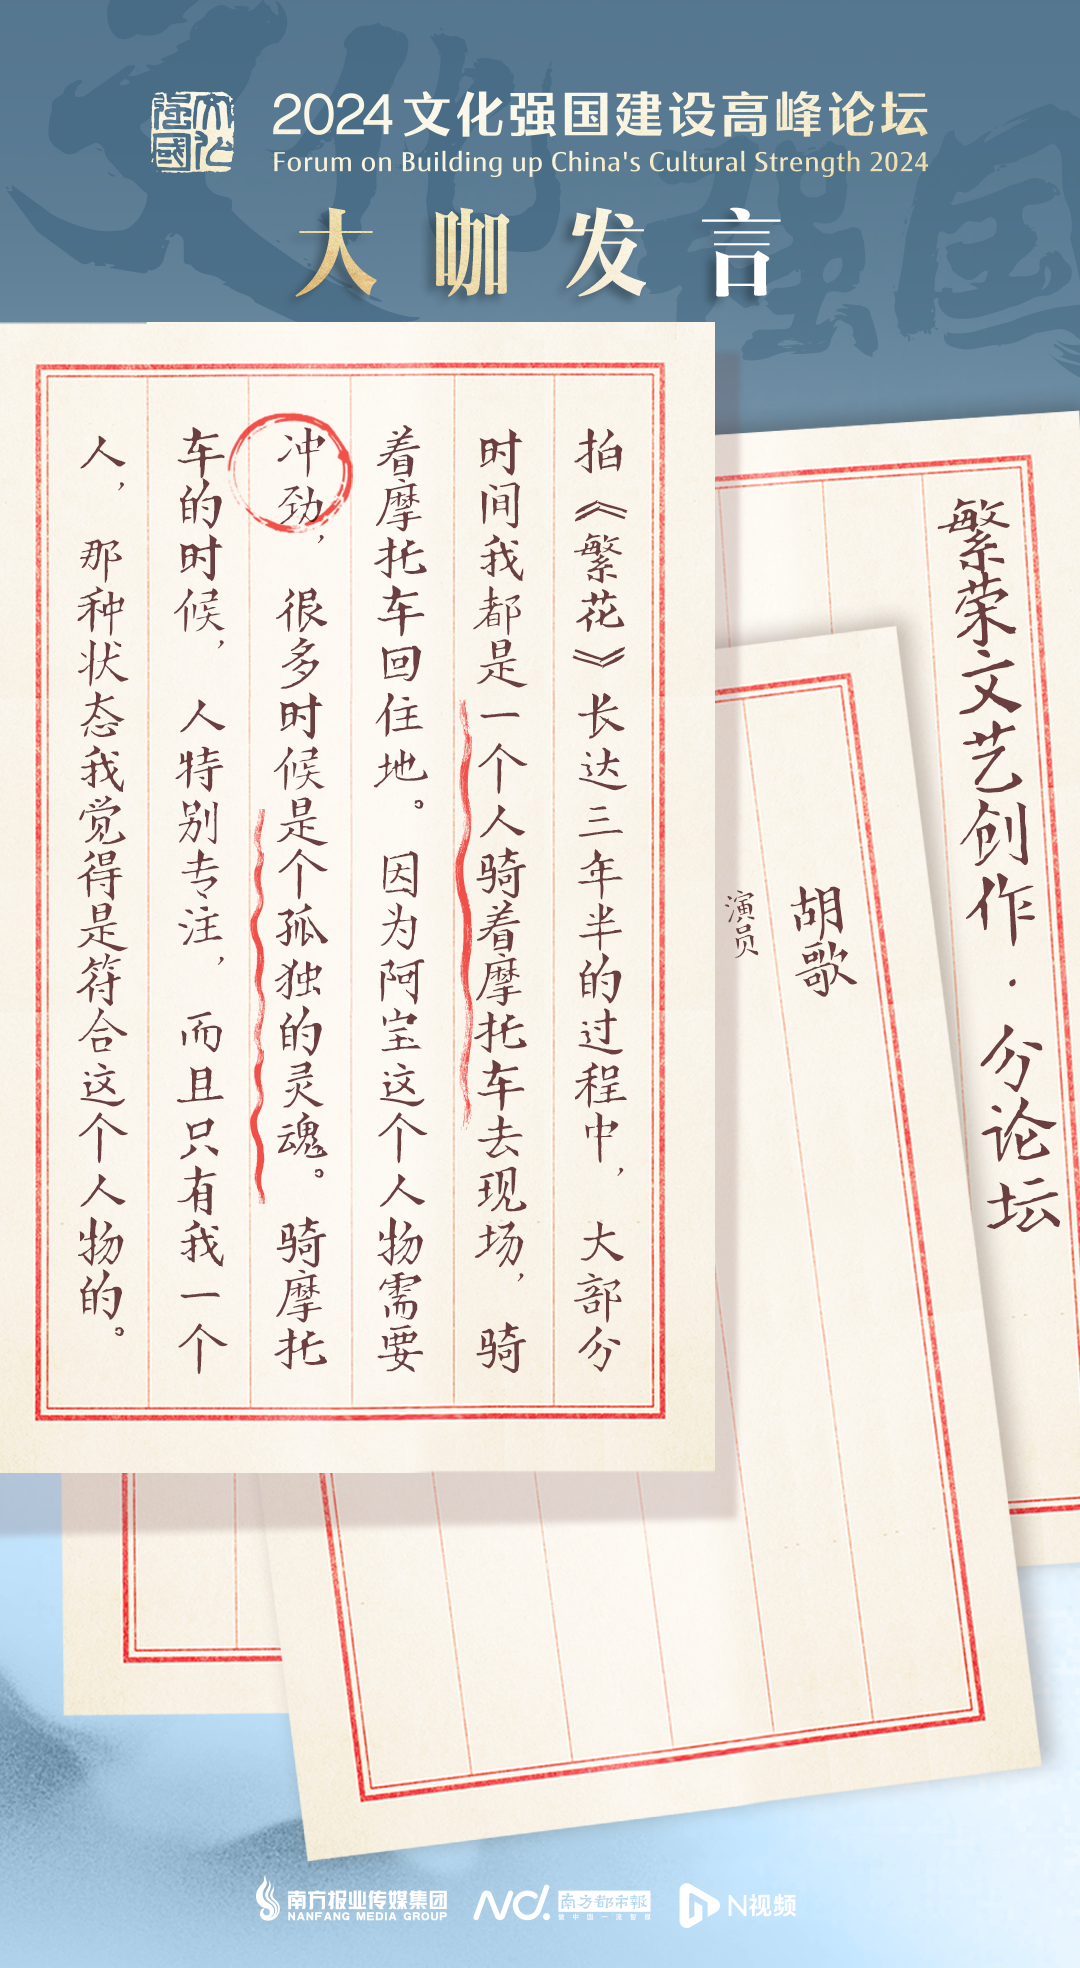 文化强国
2024文化强国建设高峰论坛
Forum on Building up China's Cultural Strength 2024
大咖发言
繁荣文艺创作·分论坛
胡歌
演员
拍《繁花》长达三年半的过程中，大部分
时间我都是一个人骑着摩托车去现场，骑
着摩托车回住地。因为阿宝这个人物需要
冲劲，很多时候是个孤独的灵魂。骑摩托
车的时候，人特别专注，而且只有我一个
人，那种状态我觉得是符合这个人物的。
南方报业传媒集团
NANFANG MEDIA GROUP
南方都市報
N视频